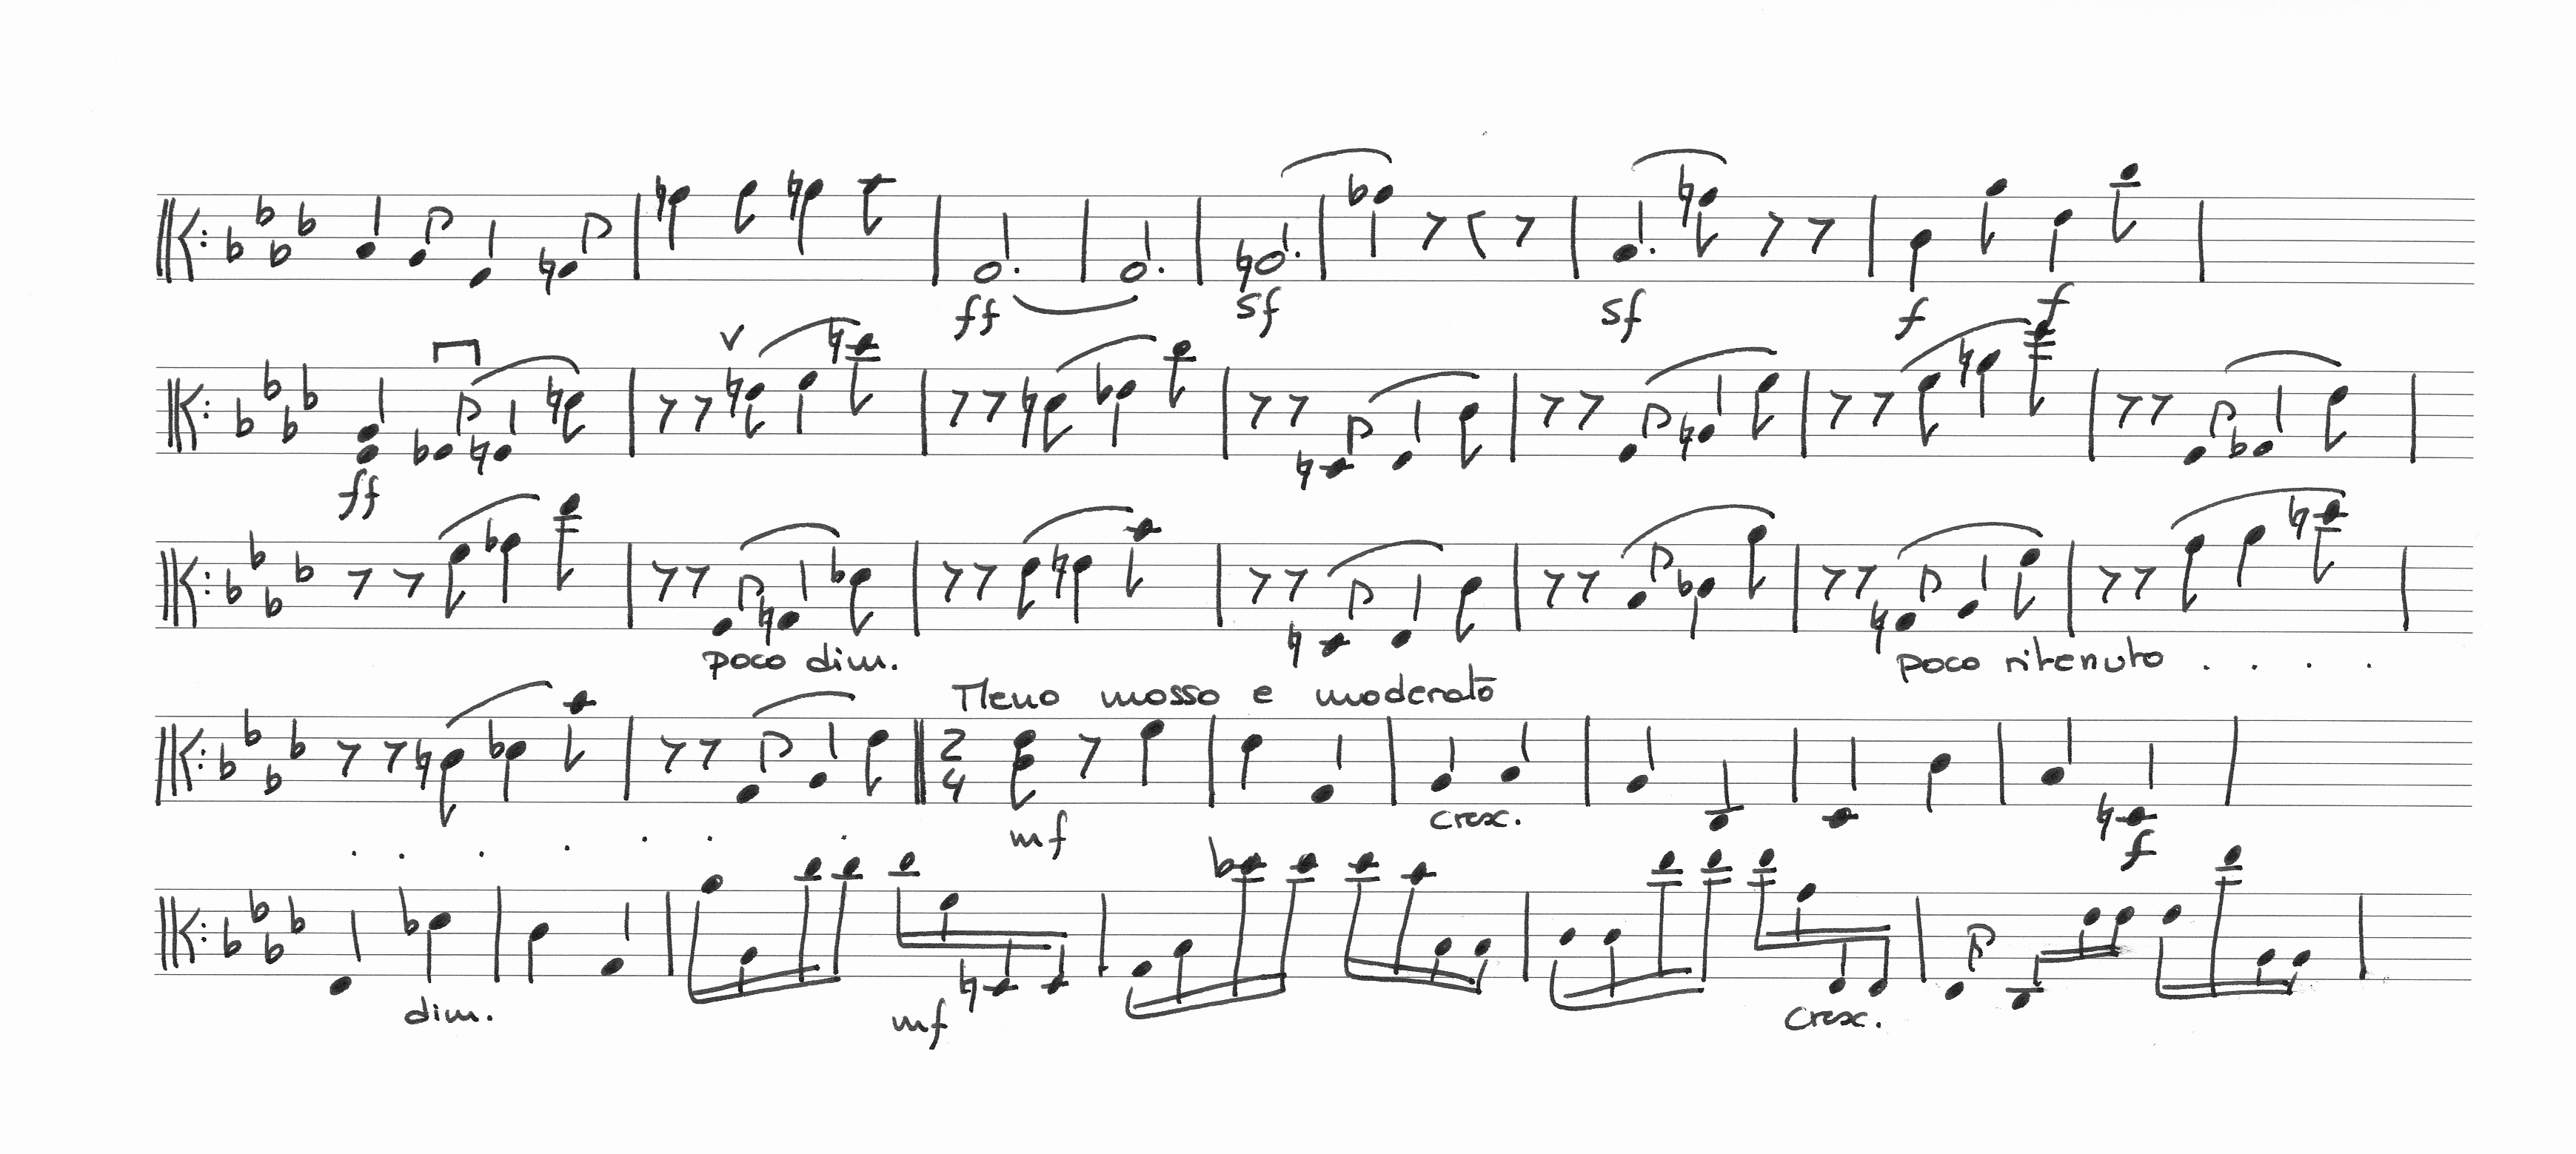 ff sf sf f f
ff
poco dim. poco ritenuto . . . .
Meno mosso e moderato
2
4
mf cresc. f
dim. mf cresc.